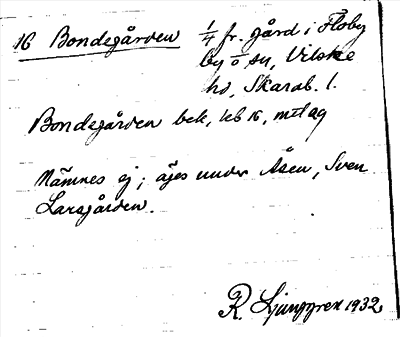 16 Bondegården 1/4 fr. gård i Floby
by o sn, Vilske
hd, Skarab. l.
Bondegården bek, leb 16, mtl ag
Nämnes ej; äges under Åsen, Sven
Larsgården.
R. Ljunggren 1932